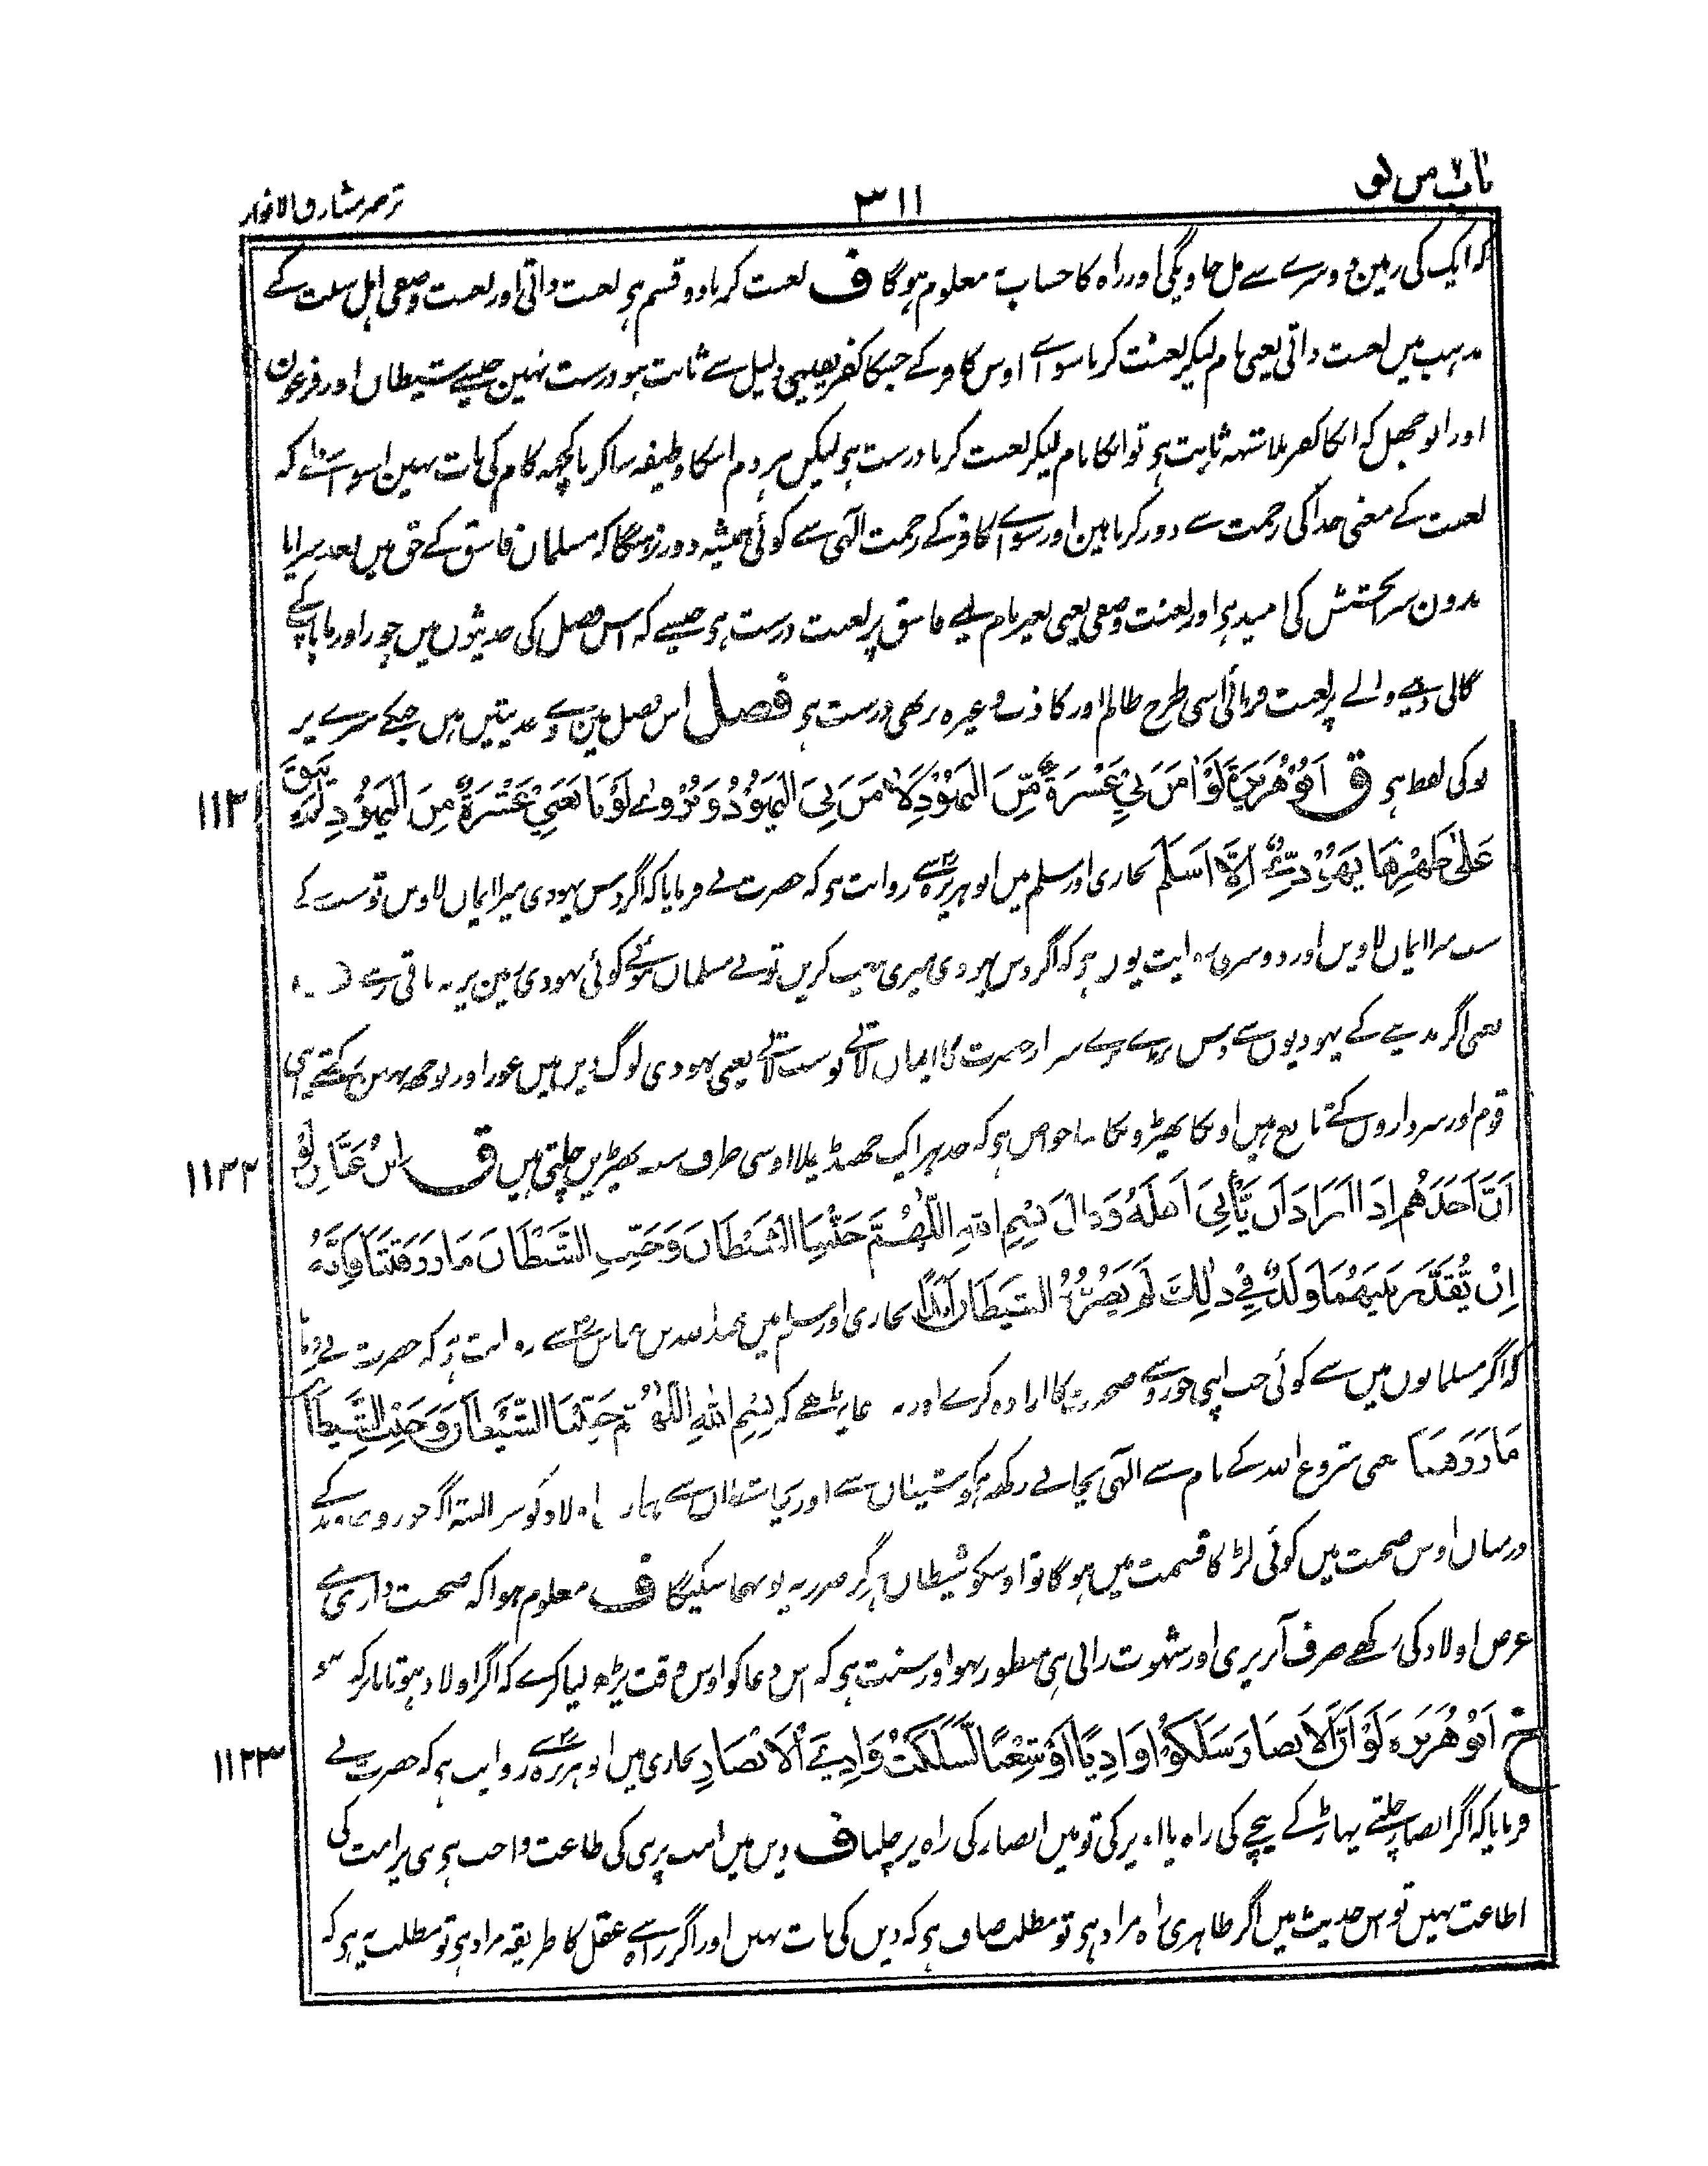 باب ۷ من لو
۳۱۱
ترجمہ مشارق الانوار
کہ ایک کی زمین دوسرے سے مل جاویگی اور راہ کا حساب نہ معلوم ہوگا ف لعنت کرنا دو قسم ہی لعنت ذاتی اور لعنت وصفی اہل سنت کے
مذہب میں لعنت ذاتی یعنی نام لیکر لعنت کرنا سواے اوس کافر کے جسکا کفر یقینی دلیل سے ثابت ہو درست نہین جیسے شیطان اور فرعون
اور ابوجهل کہ انکا کفر بلا شبہہ ثابت ہی تو انکا نام لیکر لعنت کرنا درست ہی لیکن ہر دم اسکا وظیفہ سا کرنا کچھہ کام کی بات نہین اسواسطے کہ
لعنت کے معنی خدا کی رحمت سے دور کرنا ہین اور سواے کافر کے رحمت الٰہی سے کوئی ہمیشہ دور نرہیگا کہ مسلمان فاسق کے حق میں بعد سزا یا
بدون سزا بخشش کی امید ہی اور لعنت وصفی یعنی بغیر نام لیے فاسق پر لعنت درست ہی جیسے کہ اس فصل کی حدیثوں میں چور اور ماباپ کے
گالی دینے والے پر لعنت فرمائی اسی طرح ظالم اور کاذب وغیرہ پر بھی درست ہی فصل اس فصل مین وے حدیثیں ہیں جنکے سرے پر
لو کی لفظ ہی ق اَبُوْ هُرَيْرَةَ لَوْ اٰمَنَ بِيْ عَشَرَةٌ مِّنَ الْيَهُوْدِ لَاٰمَنَ بِيَ الْيَهُوْدُ وَيُرْوٰى لَوْ تَابَعَنِيْ عَشَرَةٌ مِنَ الْيَهُوْدِ لَمْ يَبْقَ
۱۱۲۱
عَلٰى ظَهْرِهَا يَهُوْدِيٌّ اِلَّا اَسْلَمَ بخاری اور مسلم میں ابو ہریرہ سے روایت ہی کہ حضرت نے فرمایا کہ اگر دس یہودی میرا ایمان لاویں تو سب کے
سب میرا ایمان لاویں اور دوسری روایت یوں ہی کہ اگر دس یہودی میری بیعت کریں تو بے مسلمان ہوئے کوئی یہودی زمین پر نہ باقی رہے ف
یعنی اگر مدینے کے یہودیوں سے دس بڑے بڑے سردار حضرت کا ایمان لاتے تو سب لاتے یعنی یہودی لوگ دین میں غور اور بوجھہ نہیں رکھتے اپنی
قوم اور سرداروں کے تابع ہیں اونکا بھیڑونکا سا خواص ہی کہ جدہر ایک جھنڈ چلا اوسی طرف سب بھیڑیں چلتی ہیں ق اِبْنُ عَبَّاسٍ لَوْ
۱۱۲۲
اَنَّ اَحَدَهُمْ اِذَا اَرَادَ اَنْ يَّأْتِيَ اَهْلَهُ وَقَالَ بِسْمِ اللّٰهِ اَللّٰهُمَّ جَنِّبْنَا الشَّيْطَانَ وَجَنِّبِ الشَّيْطَانَ مَا رَزَقْتَنَا فَاِنَّهُ
اِنْ يُّقَدَّرْ بَيْنَهُمَا وَلَدٌ فِيْ ذٰلِكَ لَمْ يَضُرَّهُ الشَّيْطَانُ اَبَدًا بخاری اور مسلم میں عبداللہ بن عباس سے روایت ہی کہ حضرت نے فرمایا
کہ اگر مسلمانوں میں سے کوئی جب اپنی جورو سے صحبت کا ارادہ کرے اور یہ دعا پڑھے کہ بِسْمِ اللّٰهِ اَللّٰهُمَّ جَنِّبْنَا الشَّيْطَانَ وَجَنِّبِ الشَّيْطَانَ
مَا رَزَقْتَنَا یعنی شروع اللہ کے نام سے الٰہی بچائے رکھ ہمکو شیطان سے اور بچا شیطان سے ہماری اولاد کو پس البتہ اگر جورو خاوند کے
درمیان اوس صحبت میں کوئی لڑکا قسمت میں ہوگا تو اوسکو شیطان ہرگز ضرر نہ پونہچا سکیگا ف معلوم ہوا کہ صحبت داری سے
غرض اولاد کی رکھے صرف آبریزی اور شہوت رانی ہی منظور نہو اور سنت ہی کہ اس دعا کو اوس وقت پڑھ لیا کرے کہ اگر اولاد ہو تو مبارک ہو
خ اَبُوْ هُرَيْرَةَ لَوْ اَنَّ الْاَنْصَارَ سَلَكُوْا وَادِيًا اَوْ شِعْبًا لَسَلَكْتُ وَادِيَ الْاَنْصَارِ بخاری میں ابو ہریرہ سے روایت ہی کہ حضرت نے
۱۱۲۳
فرمایا کہ اگر انصار چلتے پہاڑ کے نیچے کی راہ یا اوپر کی تو میں انصار کی راہ پر چلتا ف دین میں امت پر نبی کی طاعت واجب ہی نبی پر امت کی
اطاعت نہیں تو اس حدیث میں اگر ظاہری راہ مراد ہی تو مطلب صاف ہی کہ دین کی بات نہیں اور اگر راے عقل کا طریقہ مراد ہی تو مطلب یہ ہی کہ